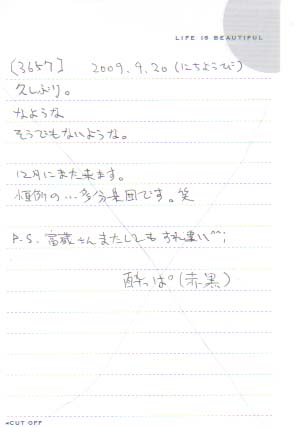 LIFE IS BEAUTIFUL
[3657] 2009.9.20 (にちようび)
久しぶり。
なような
そうでもないような。
12月にまた来ます。
恒例の…多分集団です。笑
P.S. 富蔵さんまたしても すれ違い^^;
酔っぱ°(赤黒)
◂CUT OFF